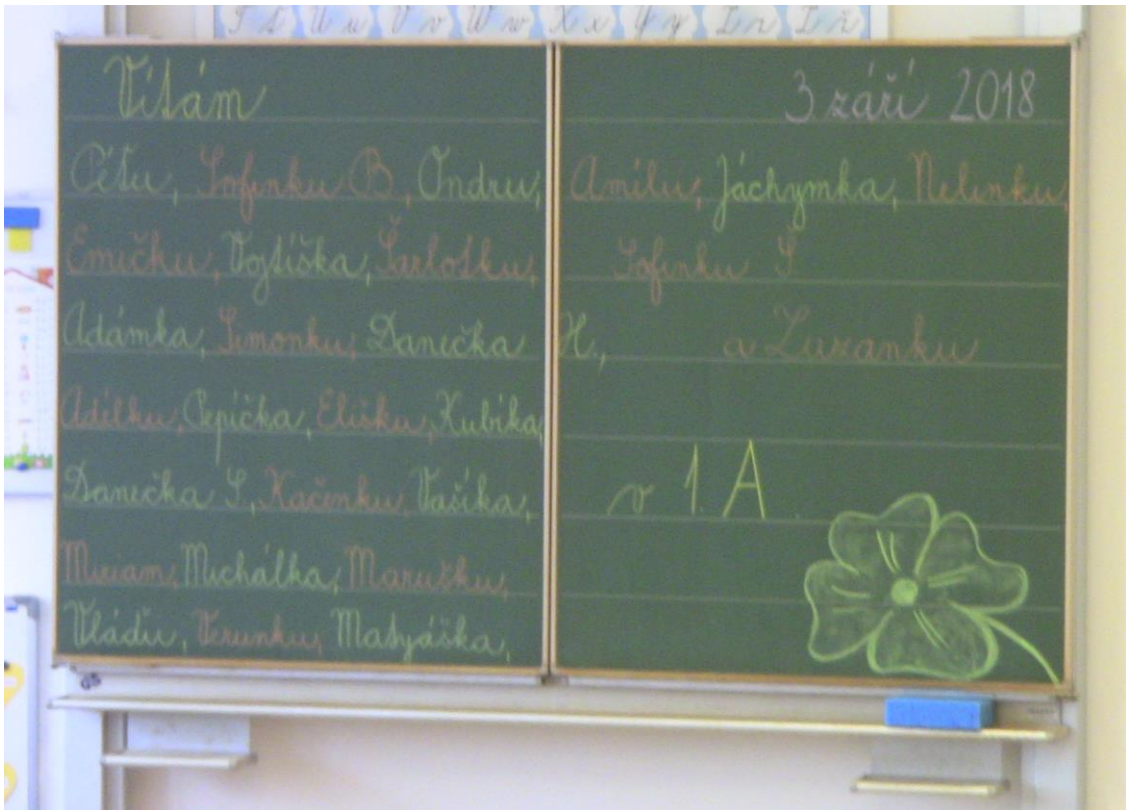 T t U u V v W w X x Y y Z z Ž ž
Vítám
Péťu, Sofinku B, Ondru,
Emičku, Vojtíška, Šarlotku,
Adámka, Simonku, Danečka H.,
Adélku, Pepíčka, Elišku, Kubíka,
Danečka S., Kačenku, Vašíka,
Miriam, Michálka, Marušku,
Vláďu, Verunku, Matyáška,
3 září 2018
Amílii, Jáchymka, Nelinku,
Sofinku S
a Zuzanku
v 1. A